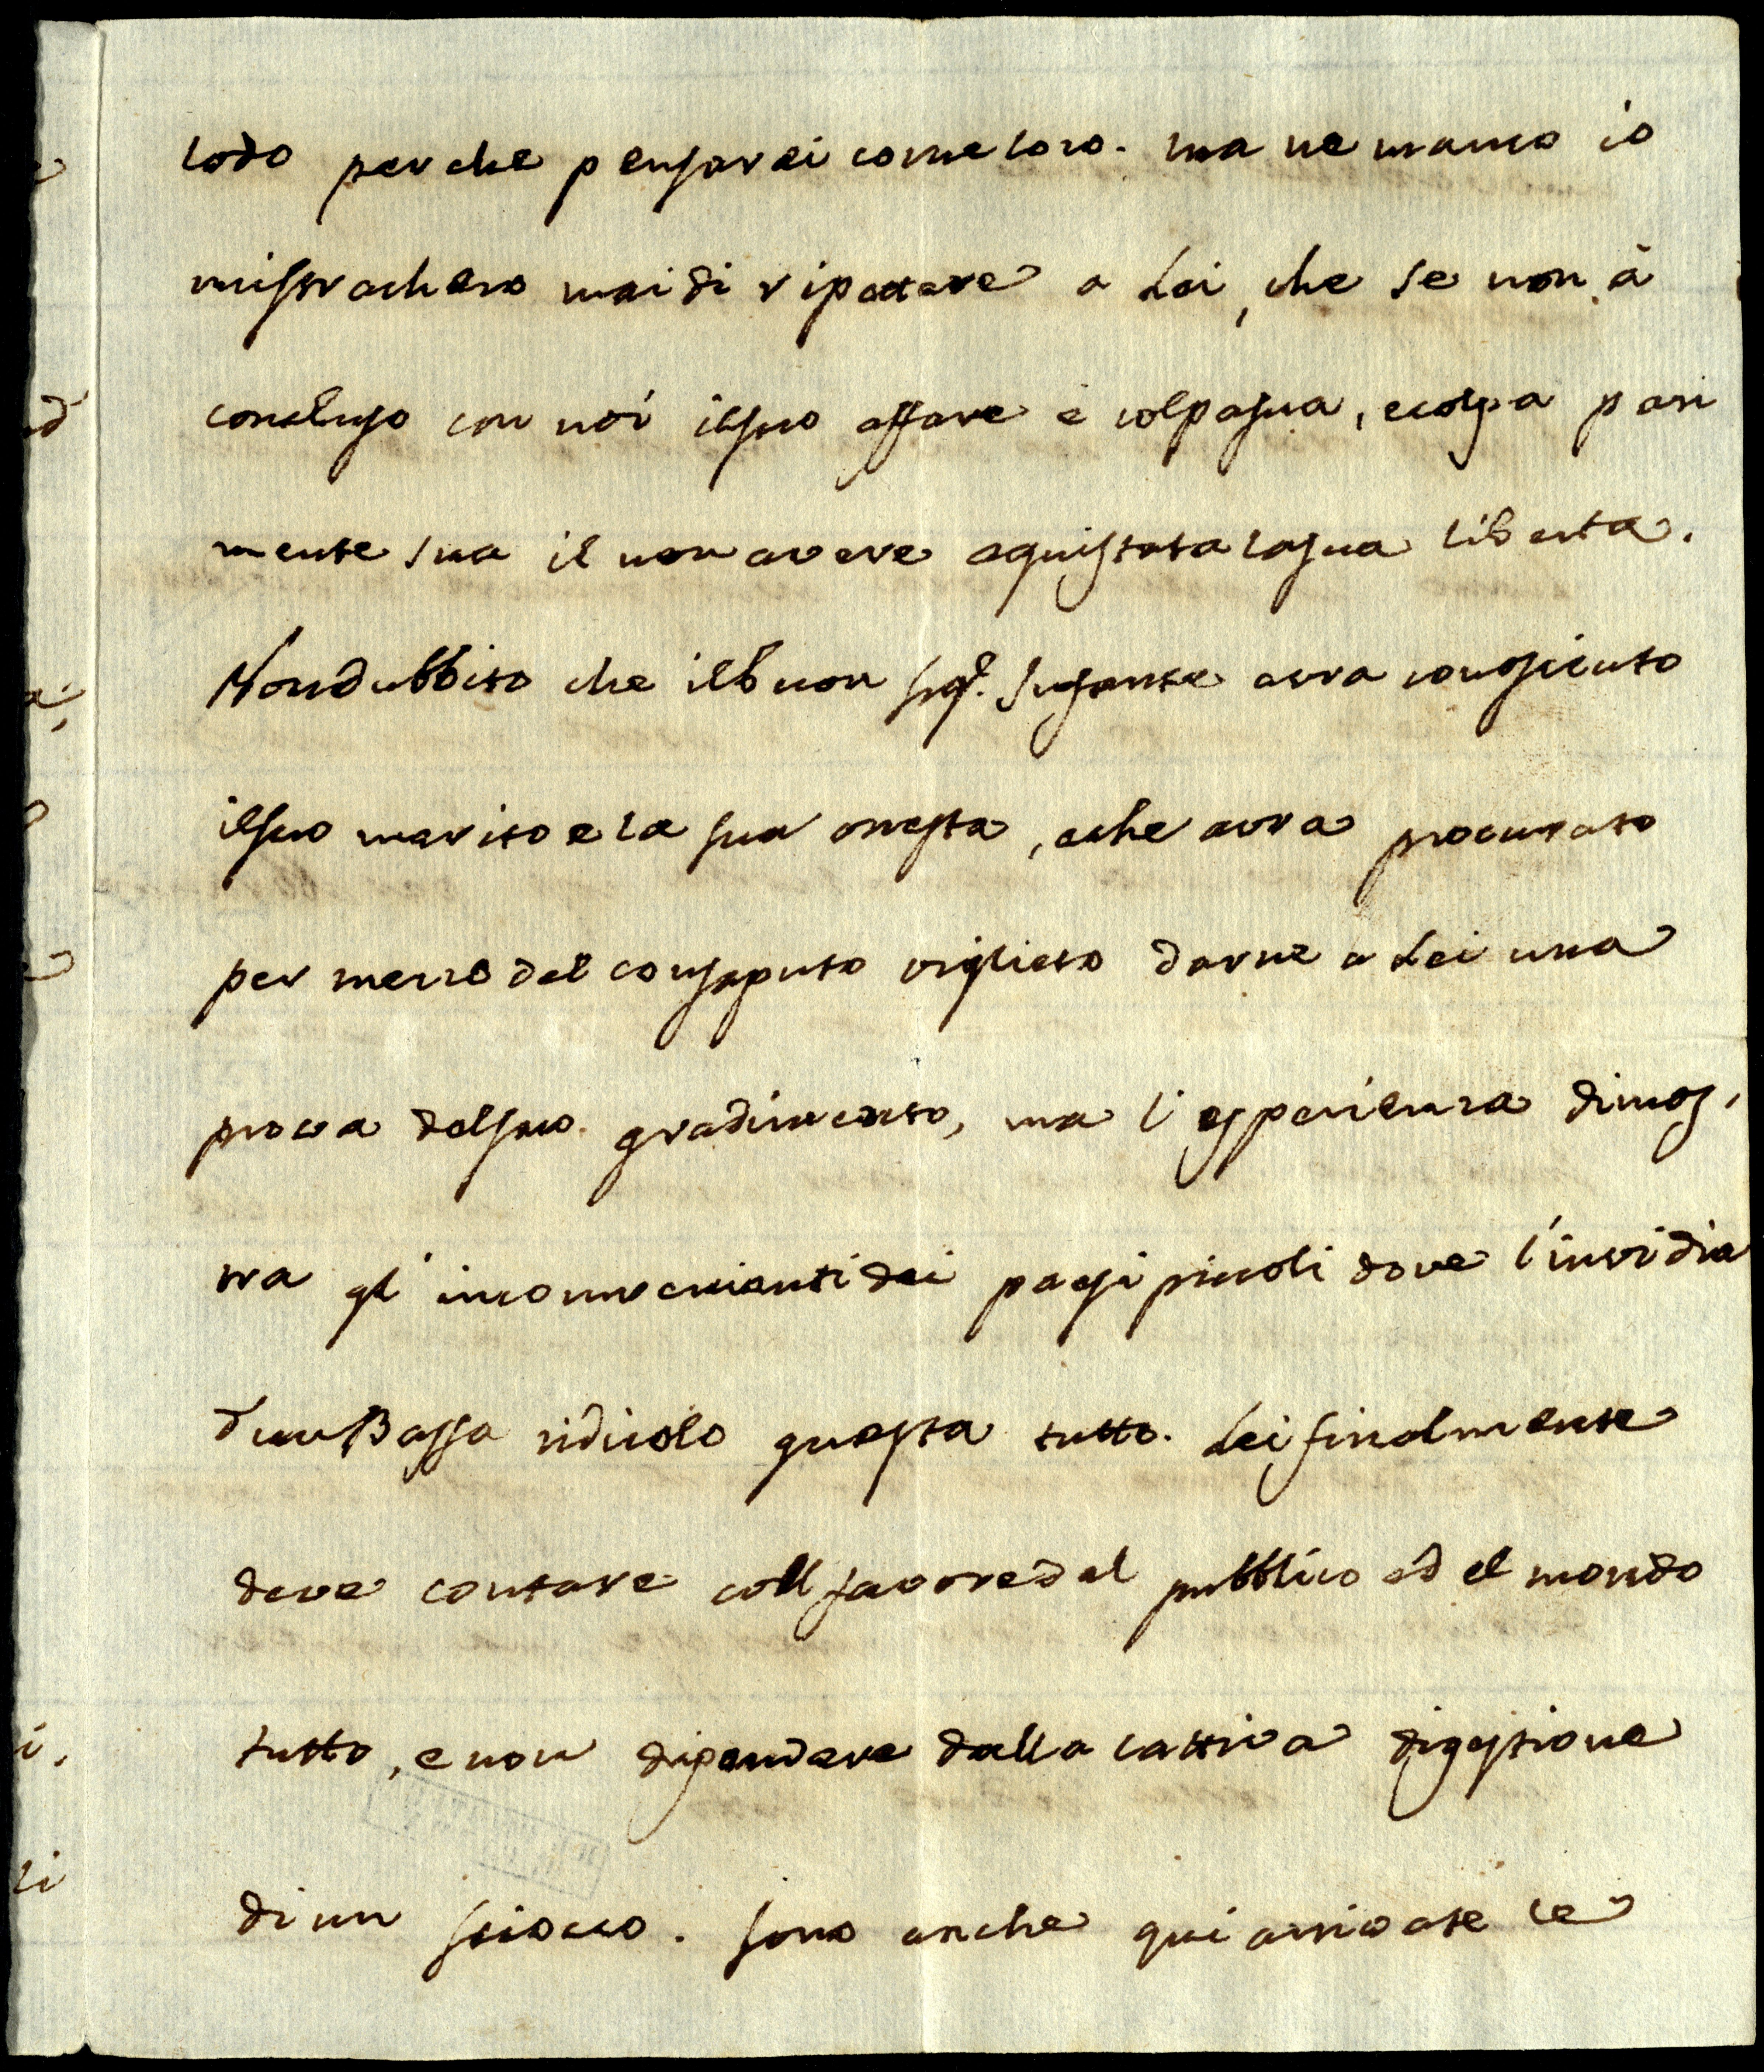 lodo perche pensarei come loro. ma ne manco io
mi stracherò mai di ripettere a Lei, che se non à
concluso con noi il suo affare è colpa sua, e colpa pari
mente sua il non avere aquistata la sua liberta.
Non dubbito che il buon Sig.r Infante avra conosciuto
il suo merito e la sua onesta, e che avra procurato
per mezzo del consaputo viglieto darne a Lei una
prova del suo gradimento, ma l'esperienza dimos,
tra gl'inconnvenienti dei paesi piccoli dove l'invidia
d'un Bassa ridicolo guasta tutto. Lei finalmente
deve contare coll favore del pubblico e del mondo
tutto, e non dipendere dalla cattiva digestione
di un sciocco. sono anche qui arrivate le